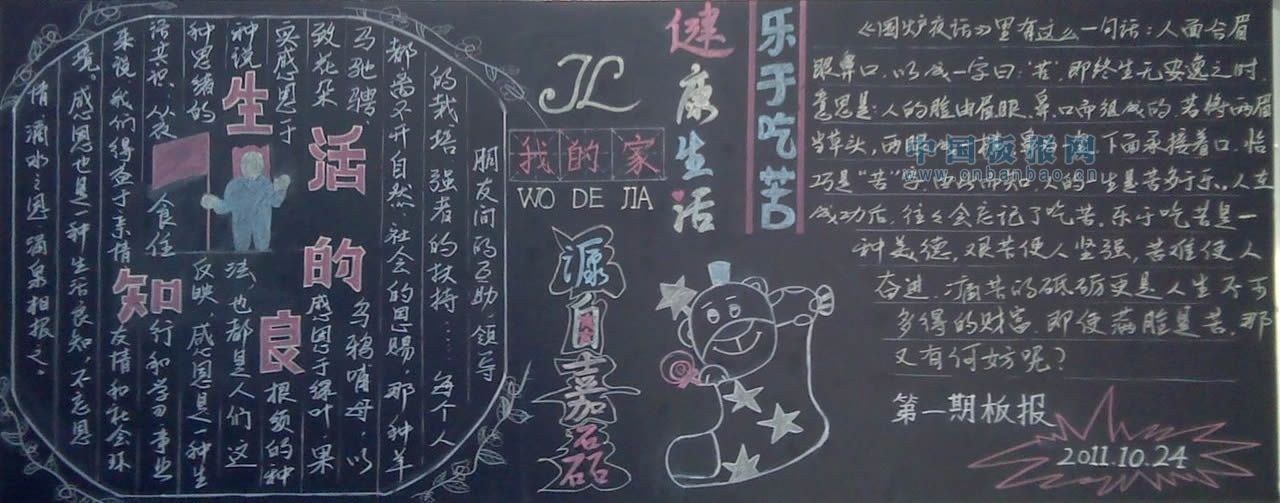 生活的良知
朋友间的互助，领导
的栽培，强者的扶持……每个人
都离不开自然、社会的恩赐，那种羊
马驰骋，乌鸦哨母，以
致花朵感恩于绿叶，果
实感恩于根须的种
种说法，也都是人们这
种思绪的反映，感恩是一种生
活共识，从衣食住行和学习事业
来说，我们得益于亲情、友情和社会环
境。感恩也是一种生活良知，不忘恩
情，滴水之恩，涌泉相报之。
JL
我的家
WO DE JIA
源自嘉磊
健康生活
乐于吃苦
《围炉夜话》里有这么一句话：人面合眉
眼鼻口，以成一字曰“苦”，即终生无安逸之时，
意思是：人的脸由眉、眼、鼻、口而组成的，若将两眉
当草头，两眼
下面承接着口，恰
巧是“苦”字，由此而知，人的一生是苦多于乐。人在
成功后，往往会忘记了吃苦。乐于吃苦是一
种美德，艰苦使人坚强，苦难使人
奋进，痛苦的砥砺更是人生不可
多得的财富，即使满脸是苦，那
又有何妨呢？
第一期板报
2011.10.24
中国板报网
www.cnbanbao.cn